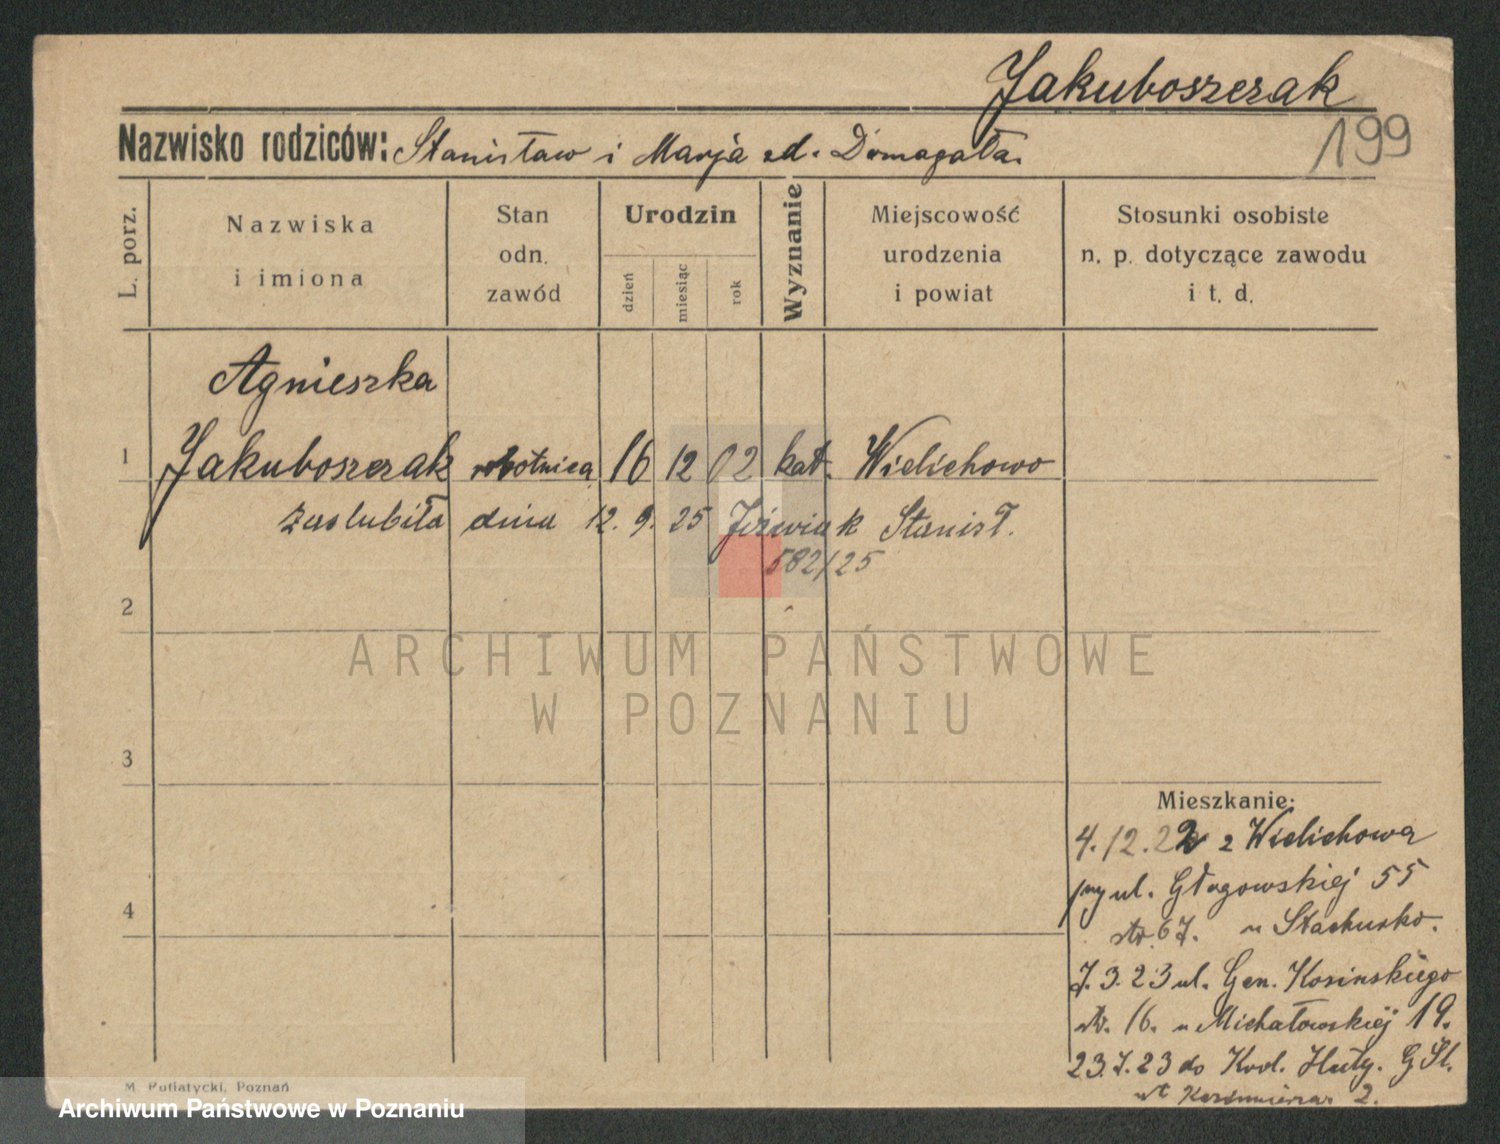 Jakuboszczak
199
Nazwisko rodziców: Stanisław i Marja zd. Domagała.
L. porz.
Nazwiska
i imiona
Stan
odn.
zawód
Urodzin
dzień
miesiąc
rok
Wyznanie
Miejscowość
urodzenia
i powiat
Stosunki osobiste
n. p. dotyczące zawodu
i t. d.
Agnieszka
1 Jakuboszczak robotnica 16 12 02 kat. Wielichowo
zaślubiła dnia 12. 9. 25 Jóźwiak Stanisł.
582/25
2
3
4
Mieszkanie:
4.12.22 z Wielichowa
przy ul. Głogowskiej 55
str. 67. u
7.3.23 ul. Gen. Kosinskiego
str. 16. u Michałowskiej 19.
23.7.23 do Król. Huty. G Śl.
2.
M. Putiatycki, Poznań
ARCHIWUM PAŃSTWOWE
W POZNANIU
Archiwum Państwowe w Poznaniu